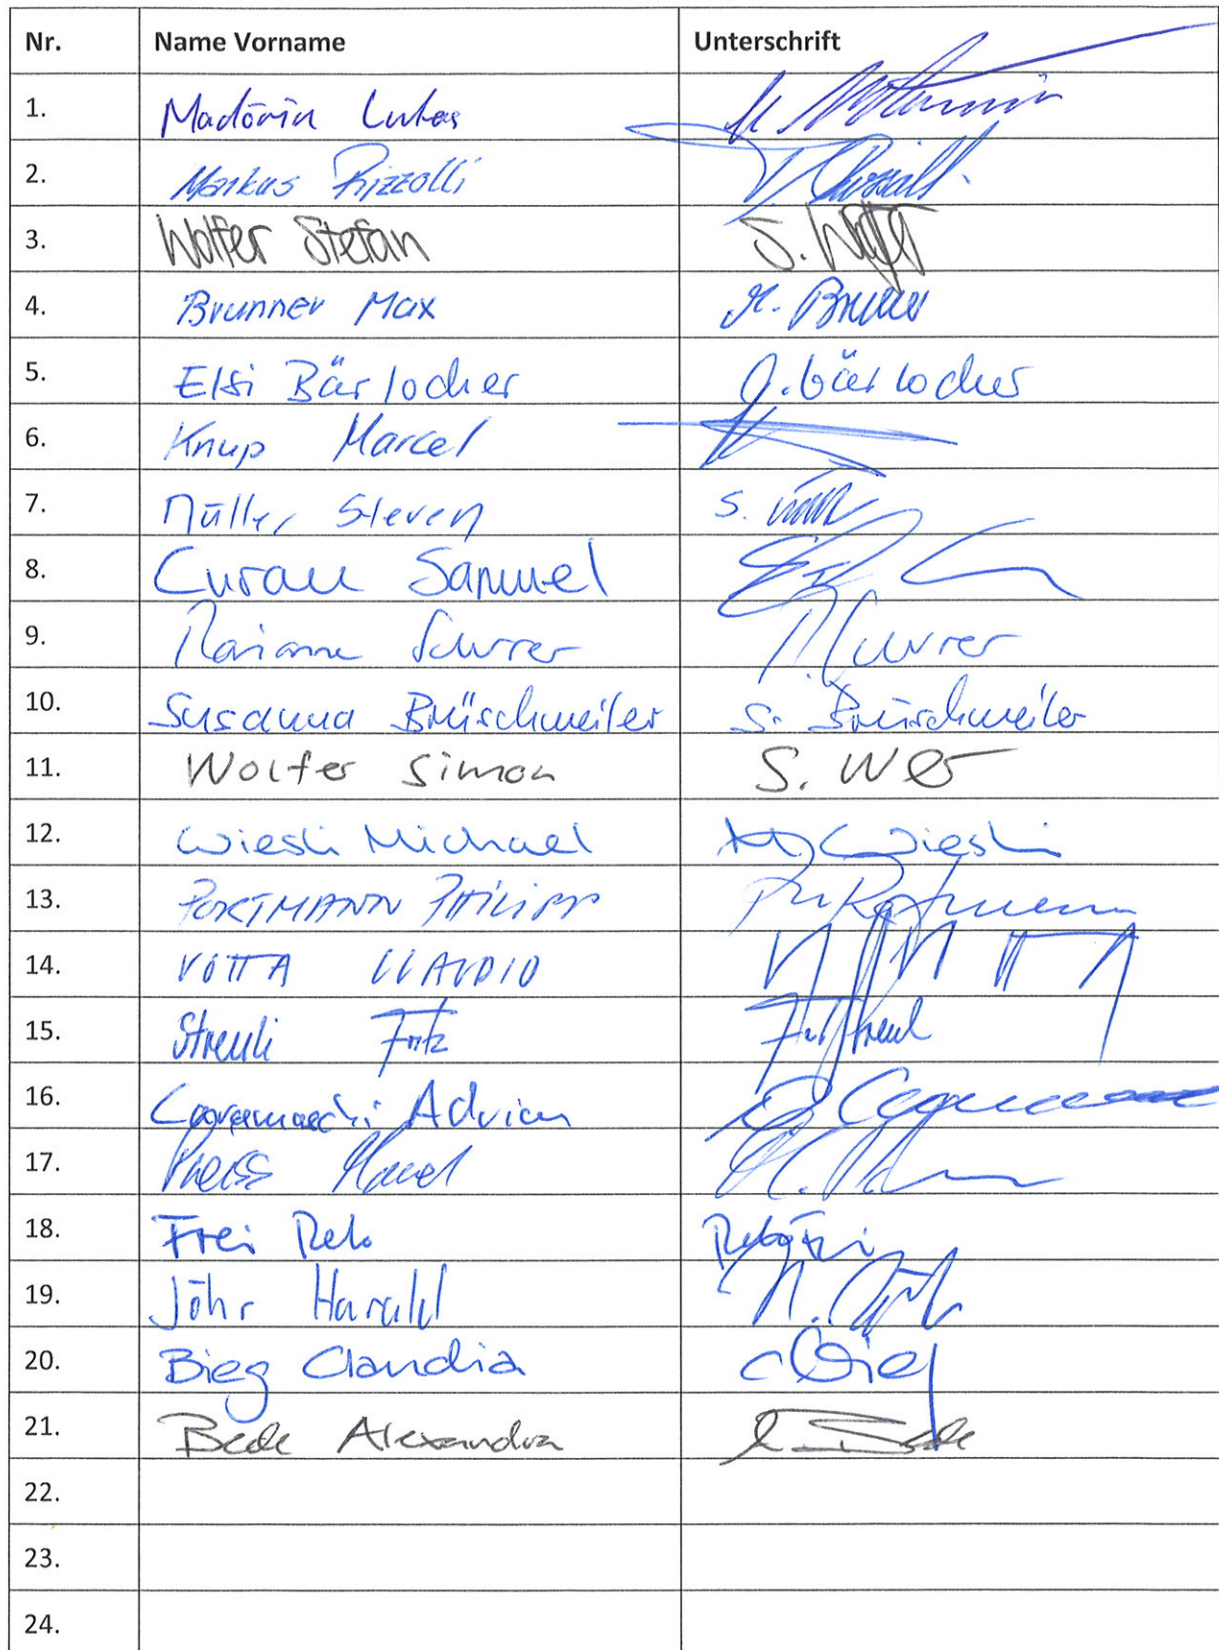 Nr. Name Vorname Unterschrift
1. Madörin Lukas
2. Markus Rizzolli
3. Wolfer Stefan S. Wolfer
4. Brunner Max M. Brunner
5. Elsi Bärlocher Bärlocher
6. Knup Marcel
7. Müller Steven S.
8. Samuel
9. Marianne Schurrer
10. Susanna Brüschweiler S. Brüschweiler
11. Wolfer Simon S.
12. Wiesli Michael M. Wiesli
13. PORTMANN PHILIPP Portmann
14. VOTTA CLAUDIO
15. Streuli Fritz
16. Adrian
17.
18. Frei Reto Reto Frei
19. Jöhr Harald
20. Bieg Claudia C Bieg
21. Alexandra
22.
23.
24.